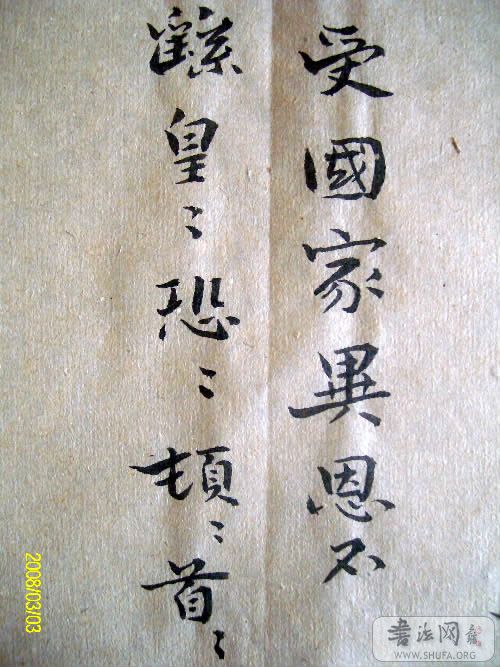 受國家異恩不
繇皇〻恐〻頓〻首〻
2008/03/03
書法网
WWW.SHUFA.ORG